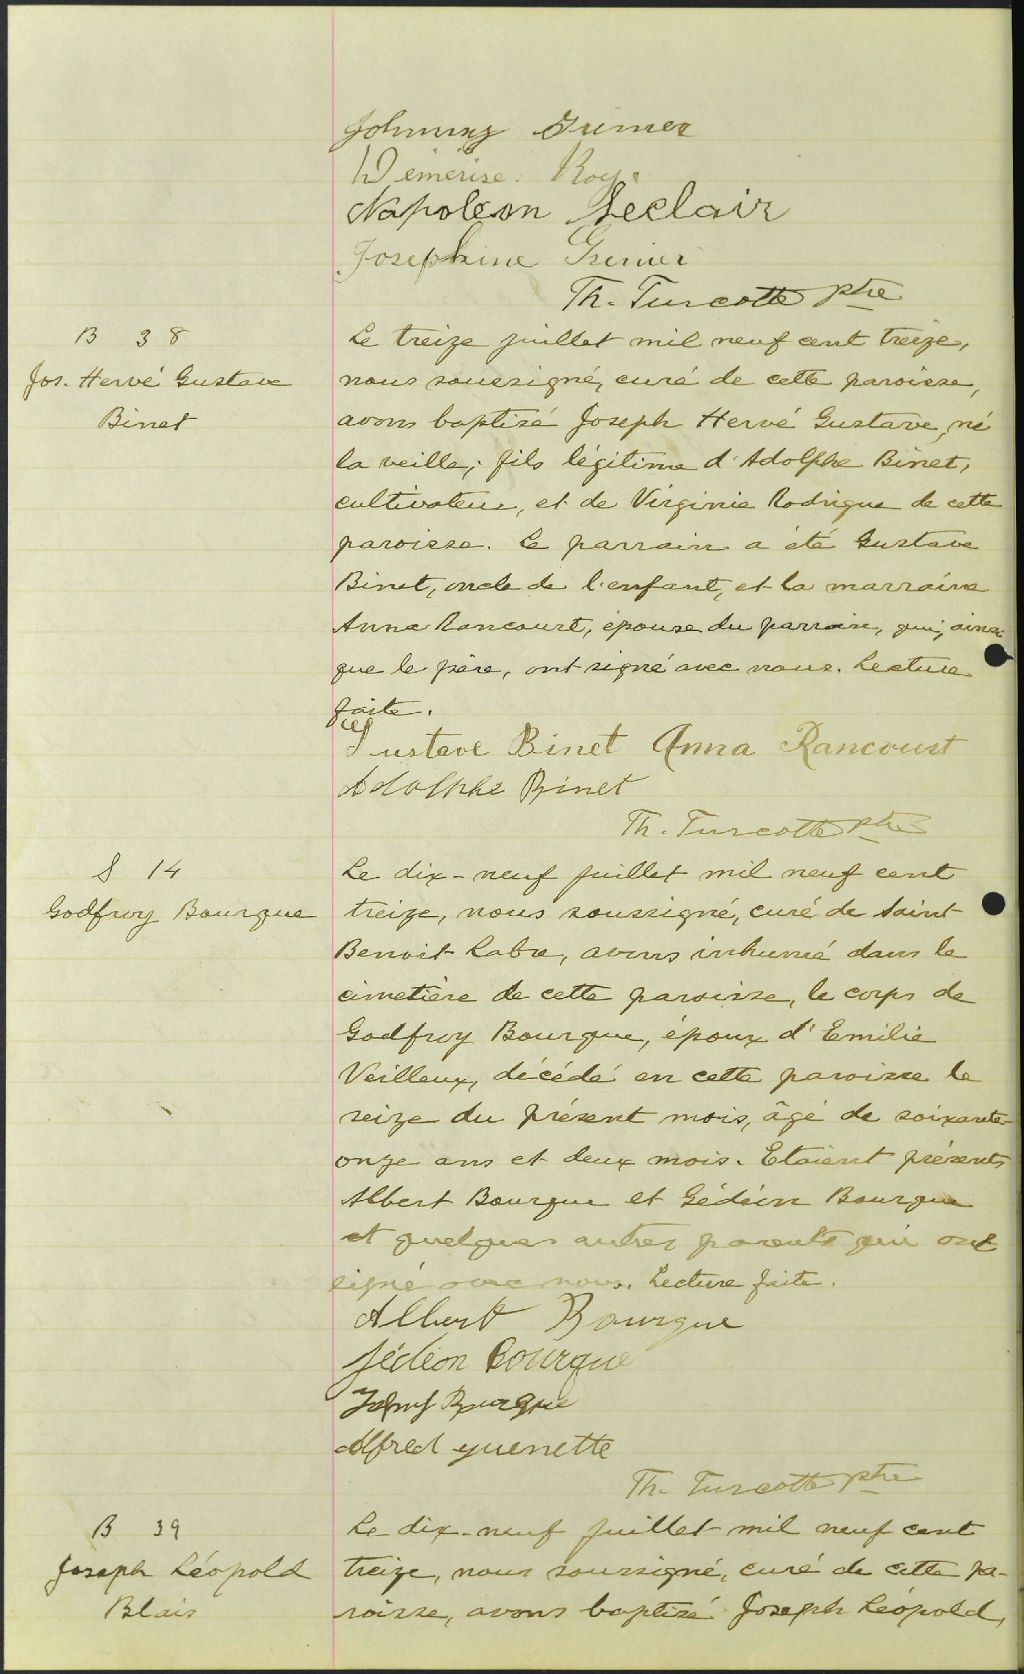 Johnny Grenier
Démerise Roy.
Napoléon Leclair
Josephine Grenier
Th. Turcotte ptre
B 38
Jos. Hervé Gustave
Binet
Le treize juillet mil neuf cent treize,
nous soussigné, curé de cette paroisse,
avons baptisé Joseph Hervé Gustave, né
la veille, fils légitime d'Adolphe Binet,
cultivateur, et de Virginie Rodrigue de cette
paroisse. Le parrain a été Gustave
Binet, oncle de l'enfant, et la marraine
Anna Rancourt, épouse du parrain, qui, ainsi
que le père, ont signé avec nous. Lecture
faite.
Gustave Binet Anna Rancourt
Adolphe Binet
Th. Turcotte ptre
S 14
Godfroy Bourque
Le dix-neuf juillet mil neuf cent
treize, nous soussigné, curé de Saint-
Benoit-Labre, avons inhumé dans le
cimetière de cette paroisse, le corps de
Godfroy Bourque, époux d'Emilie
Veilleux, décédé en cette paroisse le
seize du présent mois, âgé de soixante-
onze ans et deux mois. Etaient présents
Albert Bourque et Gédéon Bourque
et quelques autres parents qui ont
signé avec nous. Lecture faite.
Albert Bourque
Jédéon Bourque
Bourque
Alfred guenette
Th. Turcotte ptre
B 39
Joseph Léopold
Blais
Le dix-neuf juillet mil neuf cent
treize, nous soussigné, curé de cette pa-
roisse, avons baptisé Joseph Léopold,